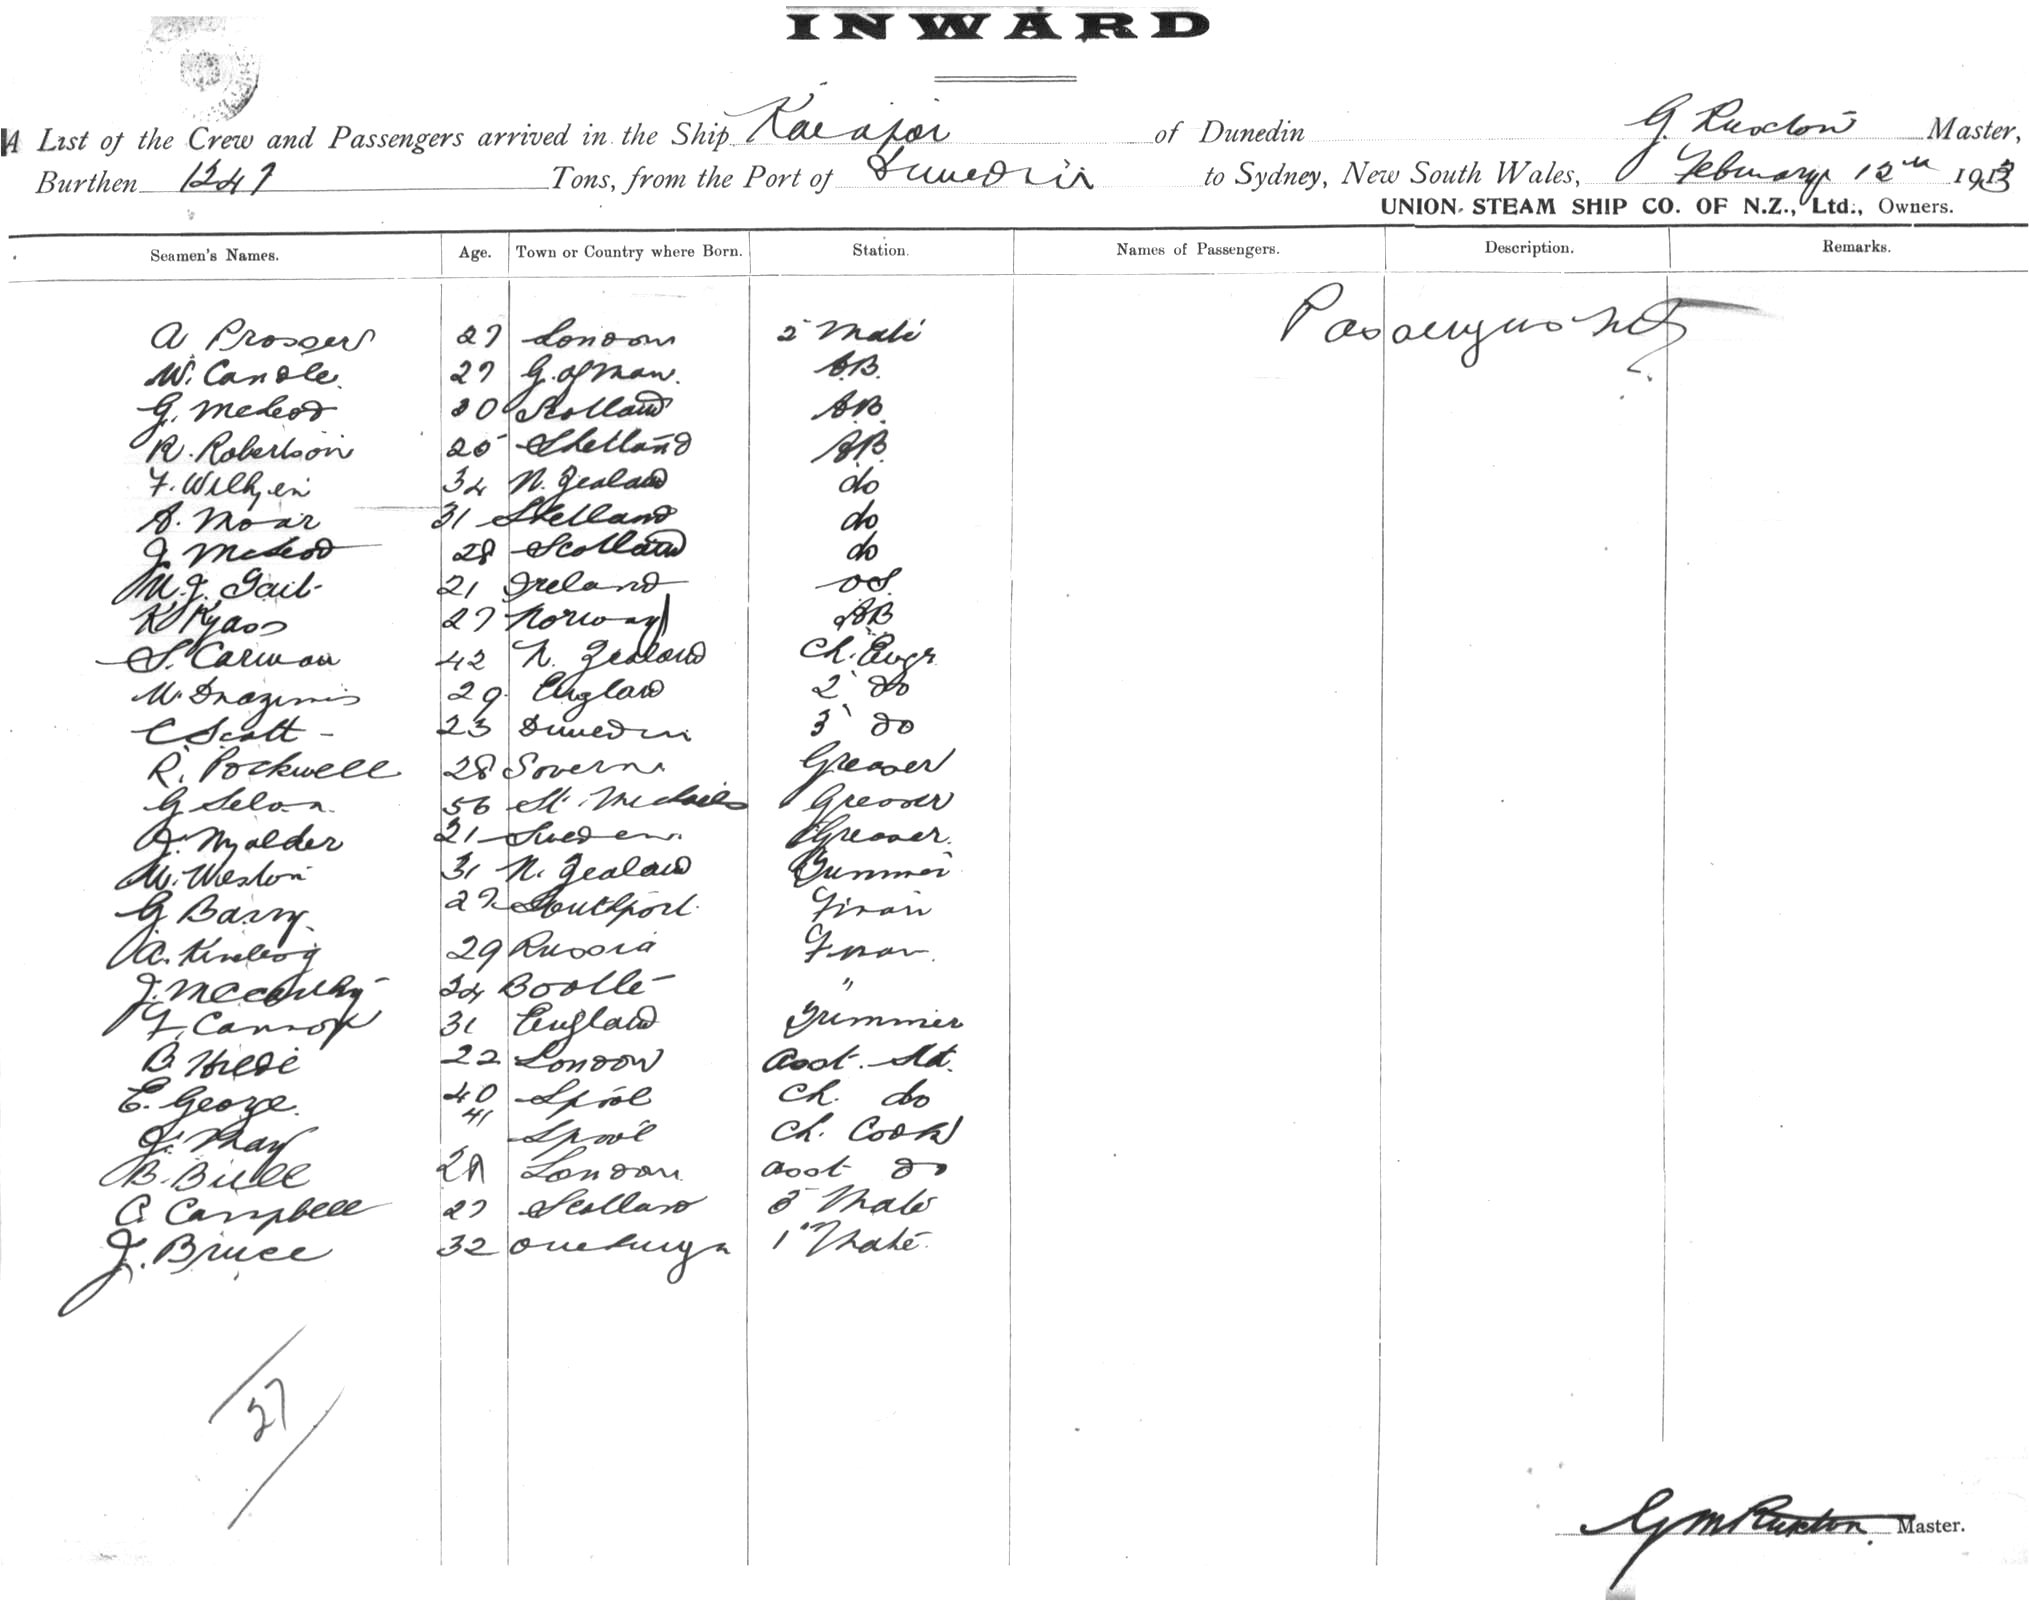 INWARD
A List of the Crew and Passengers arrived in the Ship of Dunedin G. Ruxton Master,
Burthen 1247 Tons, from the Port of Dunedin to Sydney, New South Wales, February 12th 1913
UNION STEAM SHIP CO. OF N.Z., Ltd., Owners.
Seamen's Names. Age. Town or Country where Born. Station. Names of Passengers. Description. Remarks.
Passengers Nil
A Prosser 27 London 2 Mate
W. Candle 27 of Man. AB.
G. McLeod 30 Scotland AB
R. Robertson 25 Shetland AB
F. 34 N. Zealand do
A. Moar 31 Shetland do
J. McLeod 28 Scotland do
M. J. Gail 21 Ireland OS.
K 27 Norway AB
S. Carman 42 N. Zealand Ch. Engr
W. 29 England 2 do
C Scott 23 Dunedin 3 do
R. Rockwell 28 Greaser
G 56 St. Michaels Greaser
21 Sweden Greaser
W. Weston 31 N. Zealand Trimmer
G Barry 27 Southport Firan
A. 29 Russia Firan
J. McCarthy 34 Bootle "
F. Cannop 31 England Trimmer
B. 22 London Asst. Std.
E. George. 40 Lpool Ch. do
J. May 41 Lpool Ch. Cook
B. Bull 28 London asst do
C. Campbell 27 Scotland 3 Mate
J. Bruce 32 1 Mate
27
G M Ruxton Master.